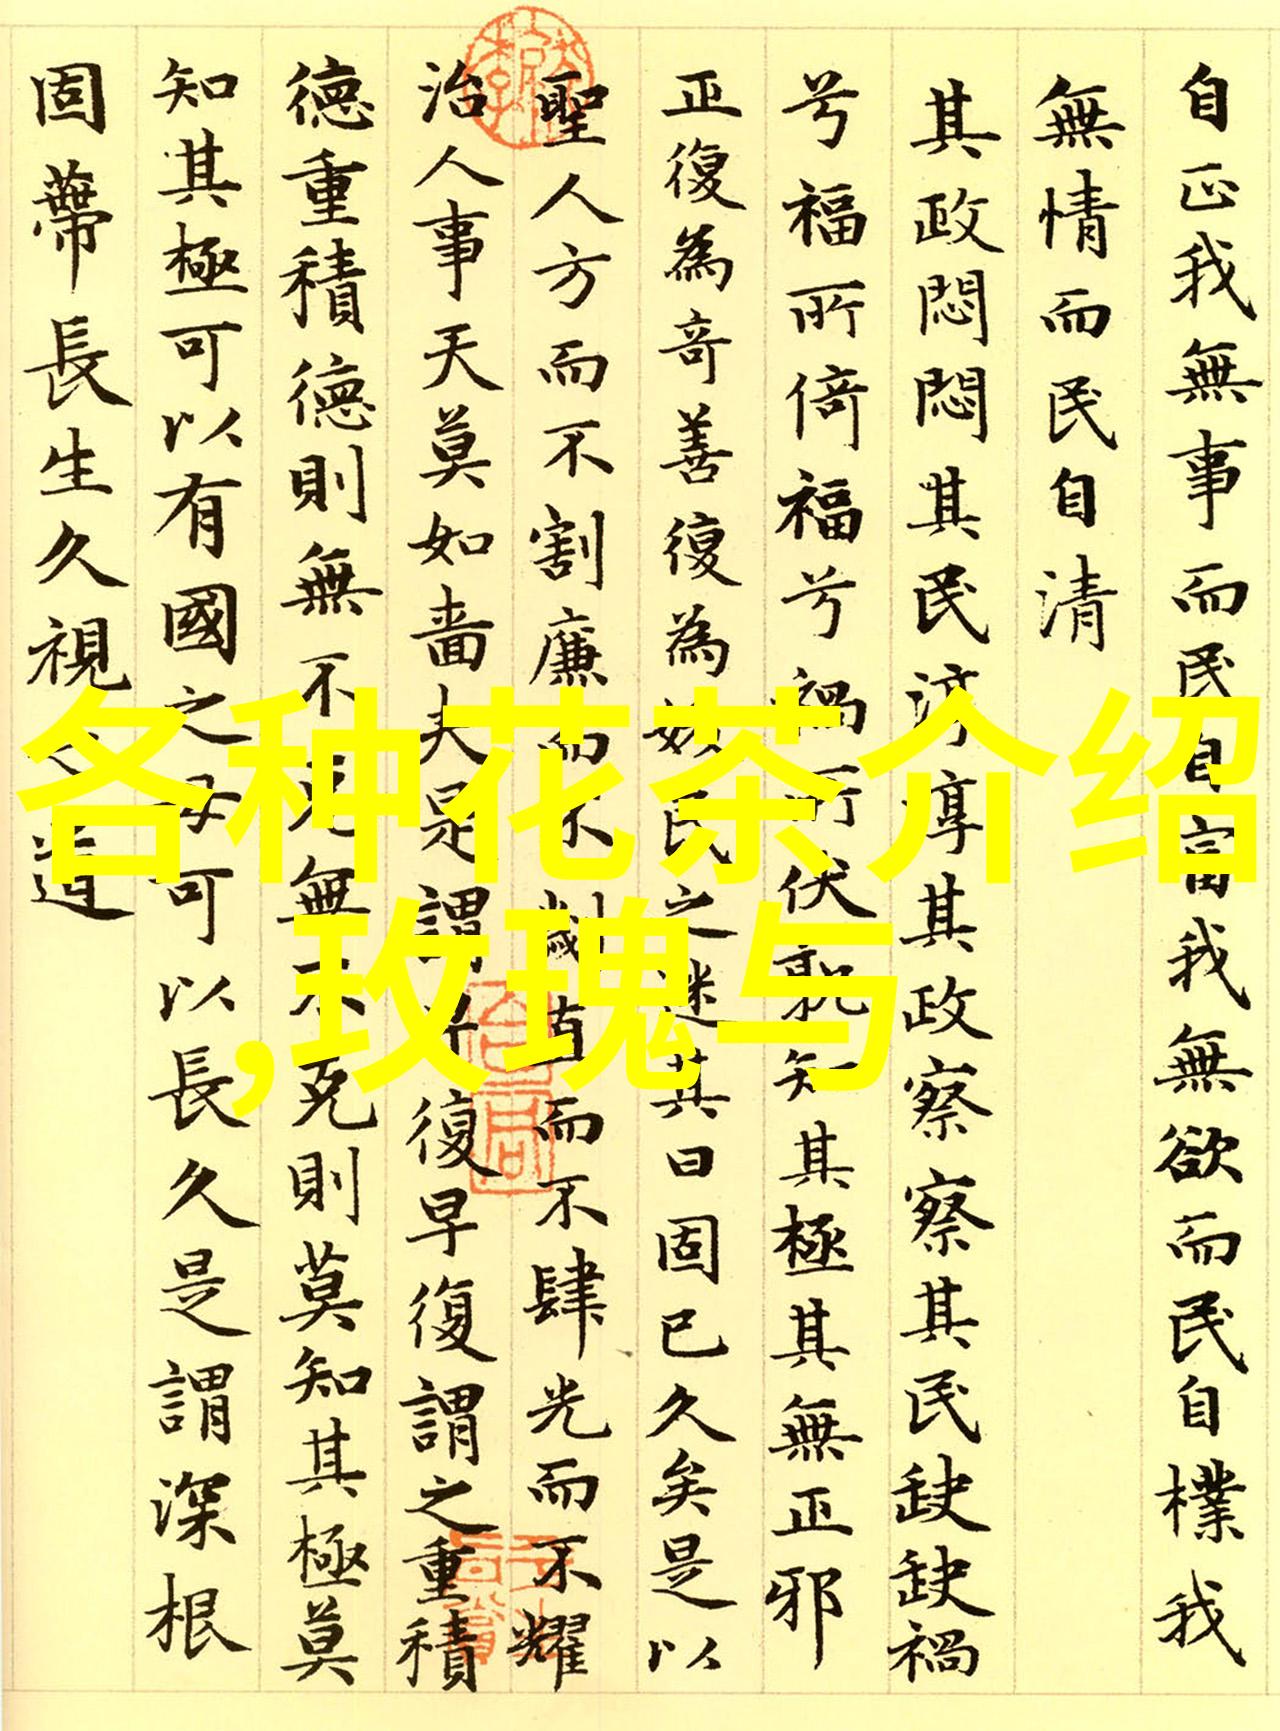 自正我無事而民自富我無欲而民自樸我
無情而民自清
其政悶悶其民淳淳其政察察其民缺缺禍
兮福所倚福兮禍所伏孰知其極其無正邪
正復為奇善復為妖民之迷其日固已久矣是以
聖人方而不割廉而不劌直而不肆光而不耀
治人事天莫如嗇夫是謂早復早復謂之重積
德重積德則無不克無不克則莫知其極莫
知其極可以有國之母可以長久是謂深根
固蔕長生久視之道
各种花茶介绍
,玫瑰与